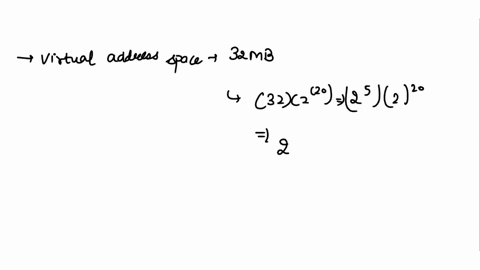 → virtual address space → 32MB
↳ (32)(2^(20)) ⇒ (2^5)(2)^20
⇒ 2